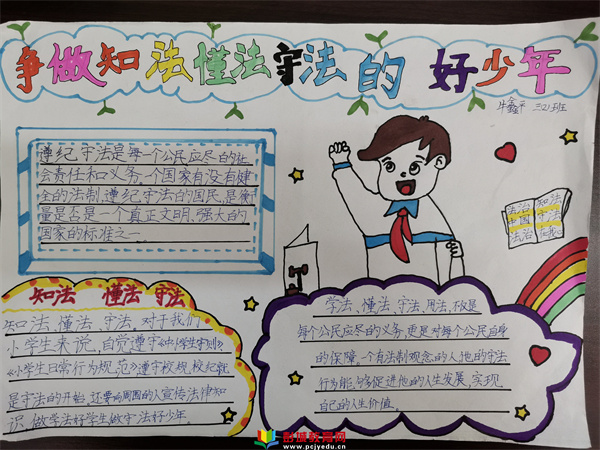 争做知法懂法守法的 好少年
牛鑫平 三(2)班
遵纪守法是每一个公民应尽的社
会责任和义务,一个国家有没有健
全的法制,遵纪守法的国民,是衡
量是否是一个真正文明、强大的
国家的标准之一
法治 知法
中国 守法
法治
知法 懂法 守法
知法、懂法、守法。对于我们
小学生来说,自觉遵守《中小学生守则》
《小学生日常行为规范》遵守校规、校纪就
是守法的开始,还要向周围的人宣传法律知
识,做学法好学生做守法好少年
学法、懂法、守法、用法,不仅是
每个公民应尽的义务,更是对每个公民自身
的保障。一个有法制观念的人他的守法
行为能够促进他的人生发展,实现
自己的人生价值。
www.pcjyedu.cn